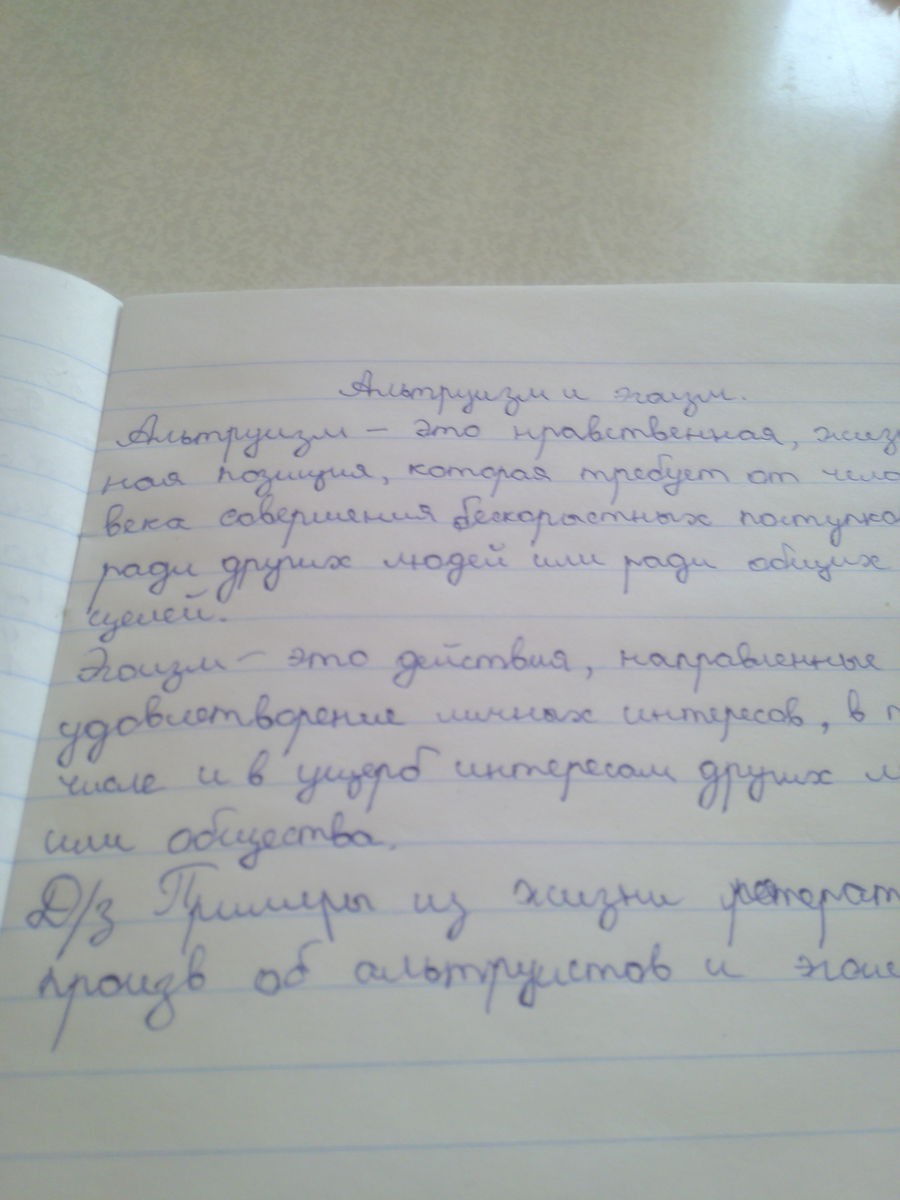 Альтруизм и эгоизм.
Альтруизм – это нравственная, жиз
ная позиция, которая требует от чело
века совершения бескорыстных поступко
ради других людей или ради общих
целей.
Эгоизм – это действия, направленные
удовлетворение личных интересов, в
числе и в ущерб интересам других
или общества.
Д/з Примеры из жизни
произв об альтруистов и эгоис